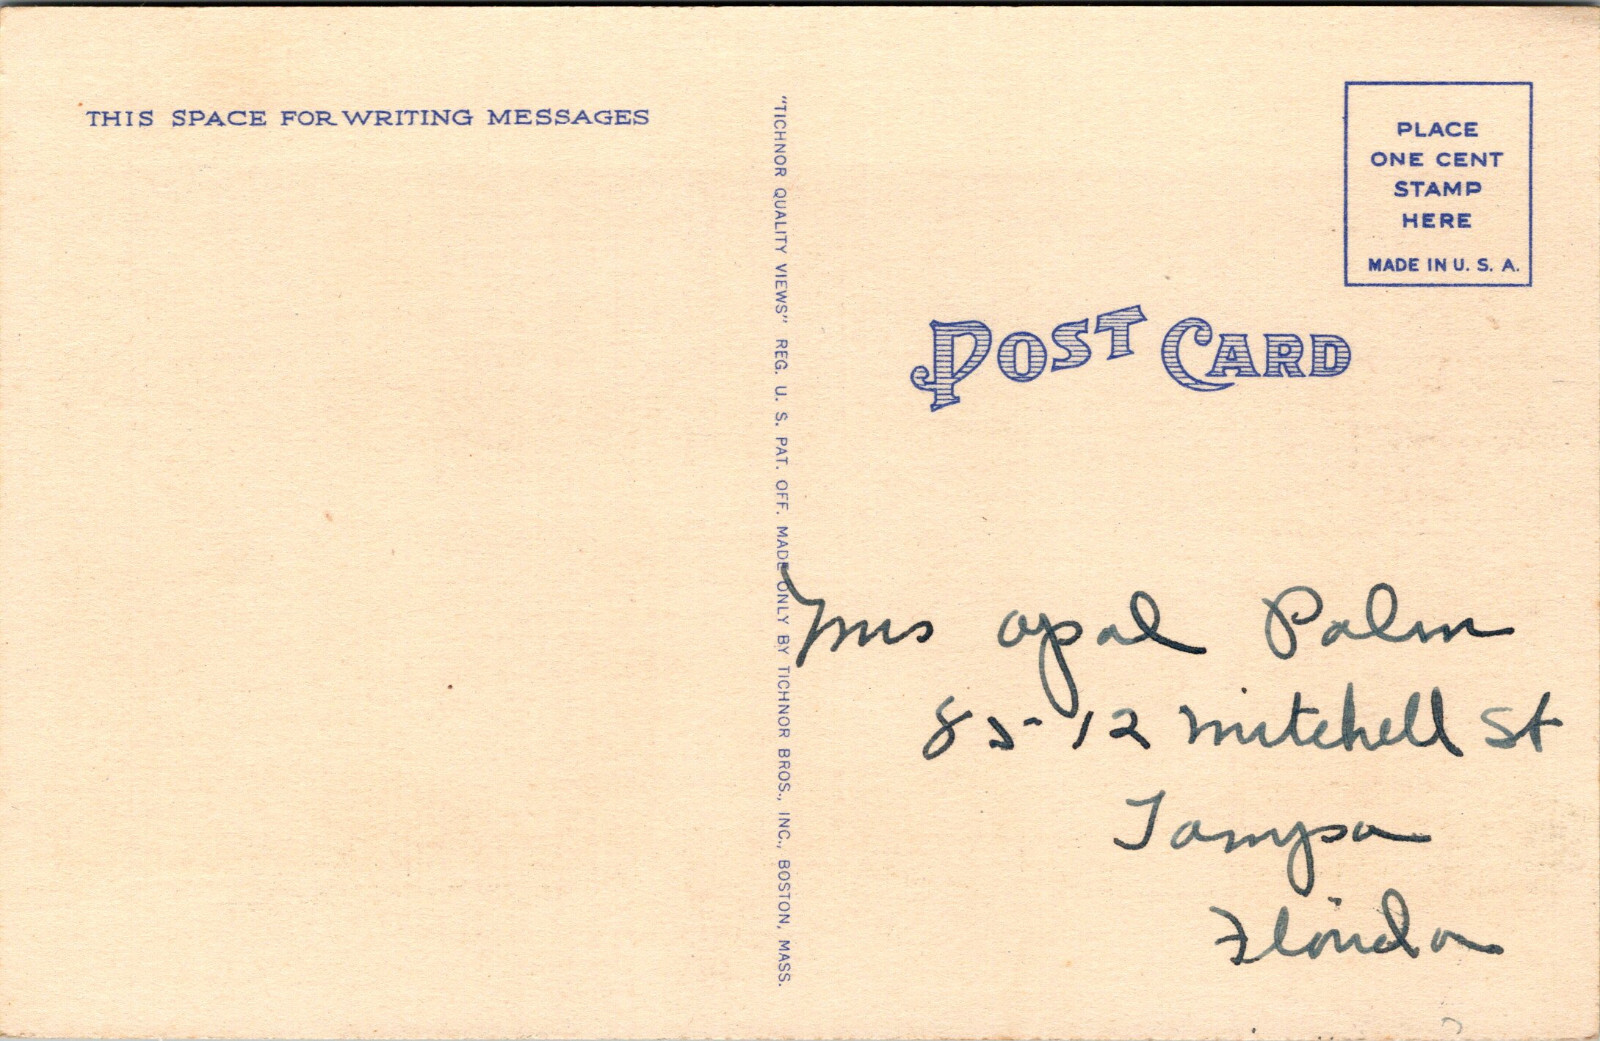 THIS SPACE FOR WRITING MESSAGES
"TICHNOR QUALITY VIEWS" REG. U. S. PAT. OFF. MADE ONLY BY TICHNOR BROS., INC., BOSTON, MASS.
PLACE
ONE CENT
STAMP
HERE
MADE IN U. S. A.
POST CARD
Mrs Opal Palm
85-12 Mitchell St
Tampa
Florida